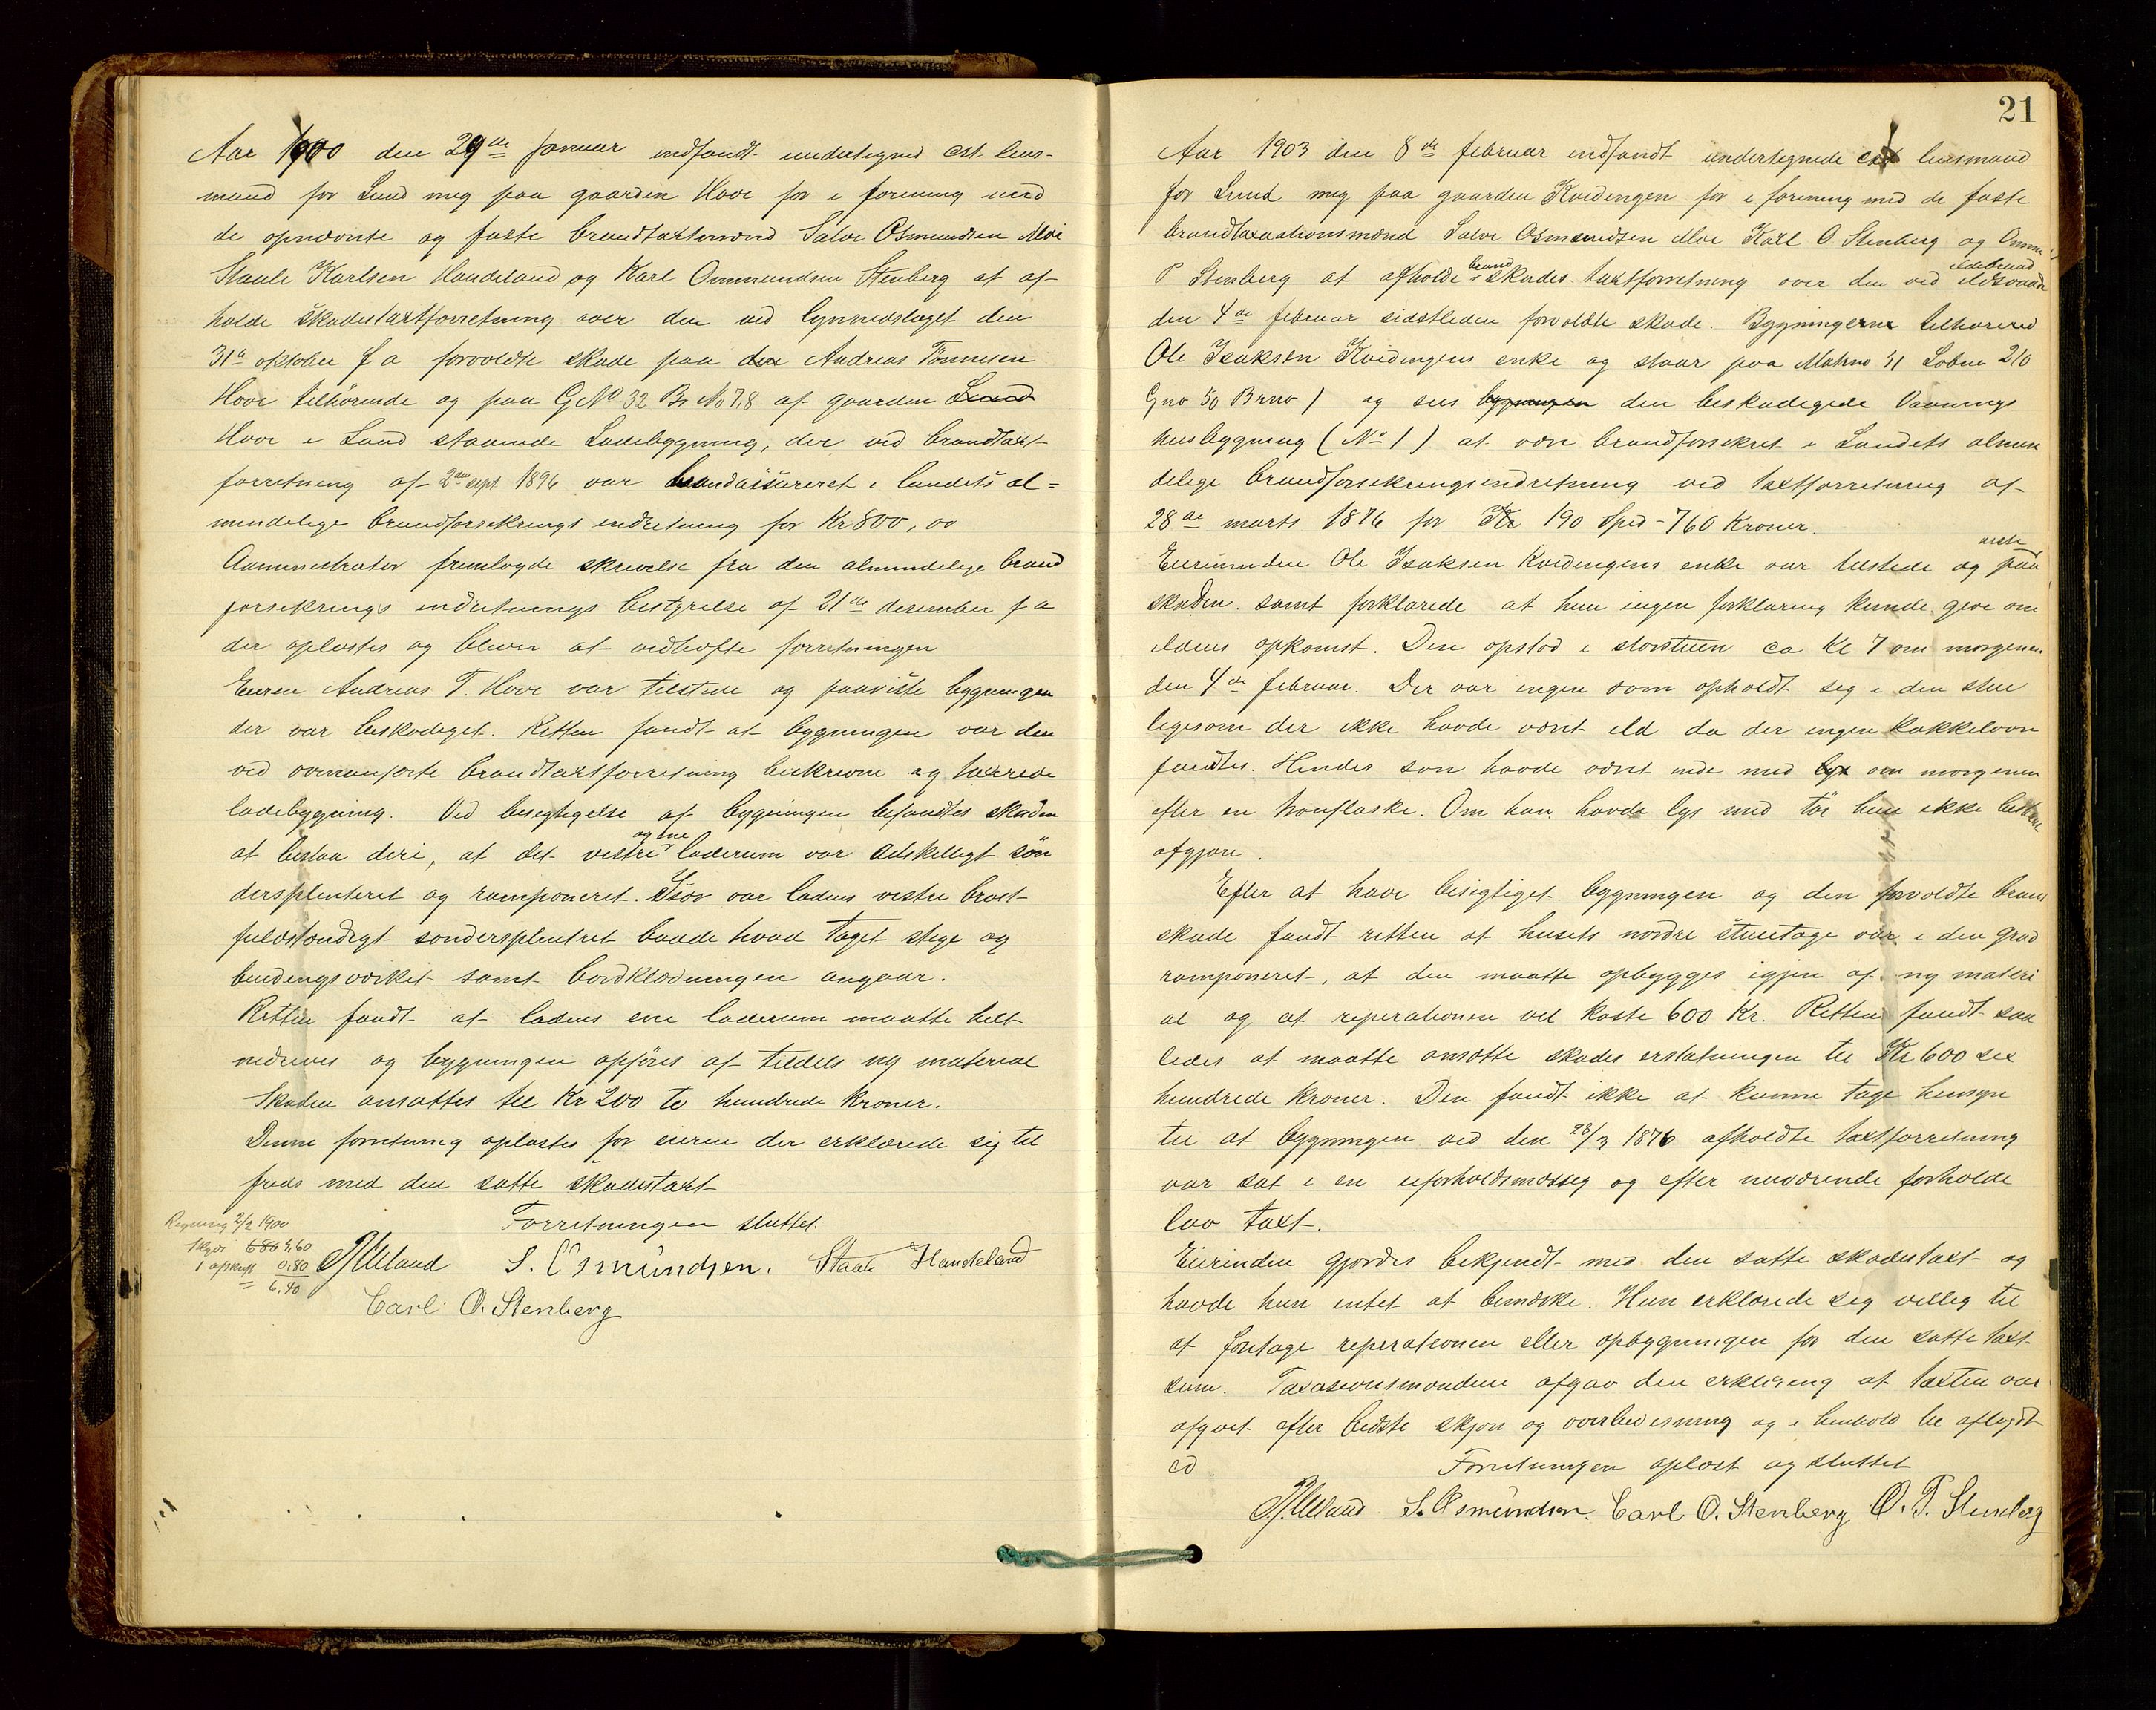 Aar 1900 den 29de januar indfandt undertegned cst lens-
mand for Lund mig paa gaarden Hove for i forening med
de opnævnte og faste brandtaxtmænd Salve Osmundsen Moi
Staale Karlsen Handeland og Karl Ommundsen Stenberg at af-
holde skadestaxtforretning over den ved lynnedslaget den
31te oktober f a forvoldte skade paa den Andreas Tönnesen
Hove tilhörende og paa G No 32 Br No 7,8 af gaarden Lund
Hove i Lund staaende Ladebygning, der ved brandtaxt-
forretning af 2den sept 1896 var brandassureret i landets al=
mindelige brandforsikrings indretning for Kr 800,00
Administrator fremlagde skrivelse fra den almindelige brand
forsikrings indretnings bestyrelse af 21de desember f a
der oplæstes og bliver at vedhæfte forretningen
Eieren Andreas T. Hove var tilstede og paaviste bygningen
der var beskadiget. Retten fandt at bygningen var den
ved ovenanførte brandtaxtforretning beskrevne og taxerede
ladebygning. Ved besigtigelse af bygningen befandtes skaden
at bestaa deri, at det vestre og ene laderum var adskilligt sön
dersplenteret og ramponeret. Især var ladens vestre brøst
fuldstændigt søndersplentret baade hvad taget stige og
bindingsværket samt bordklædningen angaar.
Retten fandt at ladens ene laderum maatte helt
nedrives og bygningen opföres af tildels ny material
Skaden ansattes til Kr 200 to hundrede kroner.
Denne forretning oplæstes for eieren der erklærede sig til
freds med den satte skadestaxt
Forretningen sluttet.
Regning 2/2 1900
Skyds 6 80 5,60
1 afskrift 0,80
= 6,40
PJ Ueland S. Osmundsen. Staale Handeland
Carl O. Stenberg
21
Aar 1903 den 8de februar indfandt undertegnede cst lensmand
for Lund mig paa gaarden Kvidingen for i forening med de faste
brandtaxationsmænd Salve Osmundsen Moi Karl O Stenberg og Ommun
P Stenberg at afholde brand-skades taxtforretning over den ved ildsvaade ildebrand
den 4de februar sidstleden forvoldte skade. Bygningerne tilhører
Ole Isaksen Kvidingens enke og staar paa Matrno 51 Løbno 210
Gno 50 Brno 1 og sees bygningen den beskadigede Vaanings
husbygning (No 1) at være brandforsikret i Landets almin
delige brandforsikringsindretning ved taxtforretning af
28de marts 1876 for Kr 190 Spd - 760 Kroner.
Eierinden Ole Isaksen Kvidingens enke var tilstede og paa viste
skaden. samt forklarede at hun ingen forklaring kunde give om
ildens opkomst. Den opstod i storstuen ca Kl 7 om morgenen
den 4de februar. Der var ingen som opholdt sig i den stue
ligesom der ikke havde været ild da der ingen kakkelovn
fandtes. Hendes søn havde været inde med lys om morgenen
efter en tranflaske. Om han havde lys med tör hun ikke bestemt
afgjøre.
Efter at have besigtiget bygningen og den forvoldte brand
skade fandt retten at husets nordre stueetage var i den grad
ramponeret, at den maatte opbygges igjen af ny materi
al og at reperationen vil koste 600 Kr. Retten fandt saa
ledes at maatte ansætte skades erstatningen til Kr 600 sex
hundrede kroner. Den fandt ikke at kunne tage hensyn
til at bygningen ved den 28/3 1876 afholdte taxtforretning
var sat i en uforholdsmæssig og efter nuværende forholde
lav taxt.
Eierinden gjordes bekjendt med den satte skadestaxt og
havde hun intet at bemærke. Hun erklærede sig villig til
at foretage reperationen eller opbygningen for den satte taxt
sum. Taxasionsmændene afgav den erklæring at taxten var
afgivet efter bedste skjøn og overbevisning og i henhold til aflagt
ed Forretningen oplæst og sluttet
PJ. Ueland S. Osmundsen. Carl O. Stenberg O. P. Stenberg